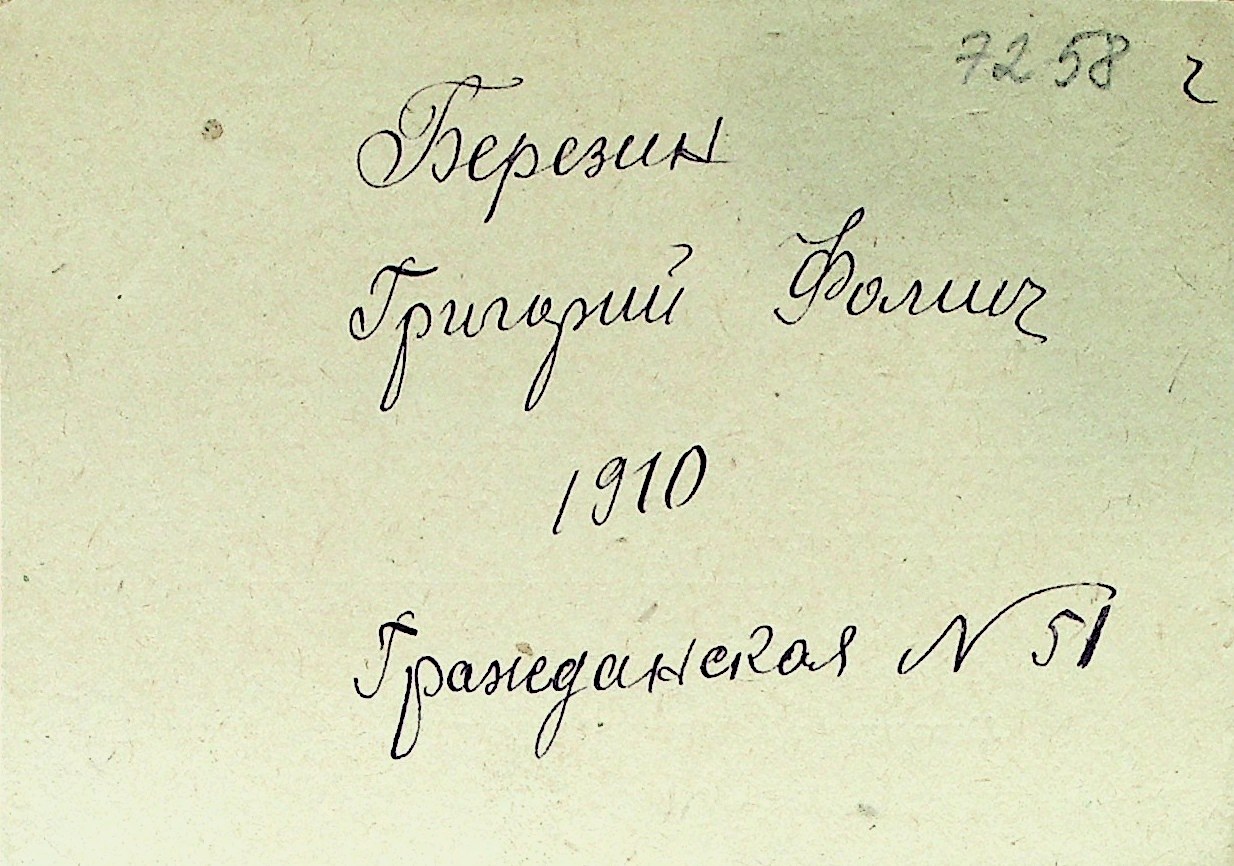 7258 г
Березин
Григорий Фомич
1910
Гражданская N 51